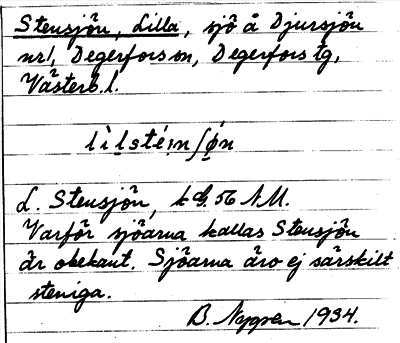 Stensjön, Lilla, sjö å Djursjön
nr 1, Degerfors sn, Degerfors tg,
Västerb. l.
lìlsté̩i̩nʃø̩n
L. Stensjön, k 56 NM.
Varför sjöarna kallas Stensjön
är obekant. Sjöarna äro ej särskilt
steniga.
B. Nygren 1934.